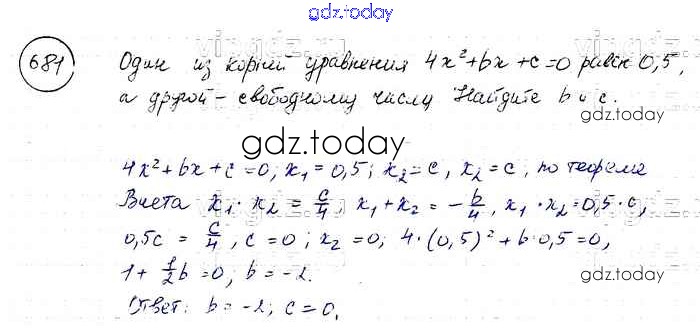 gdz.today
681
Один из корней уравнения 4x²+bx+c=0 равен 0,5,
а другой - свободному числу. Найдите b и c.
gdz.today
4x²+bx+c=0; x₁=0,5; x₂=c, x₂=c, по теореме
Виета x₁·x₂ = c/4, x₁+x₂ = -b/4, x₁·x₂=0,5·c,
0,5c = c/4, c=0; x₂=0; 4·(0,5)²+b·0,5=0,
1+ 1/2 b=0, b=-2.
Ответ: b=-2, c=0.
gdz.today